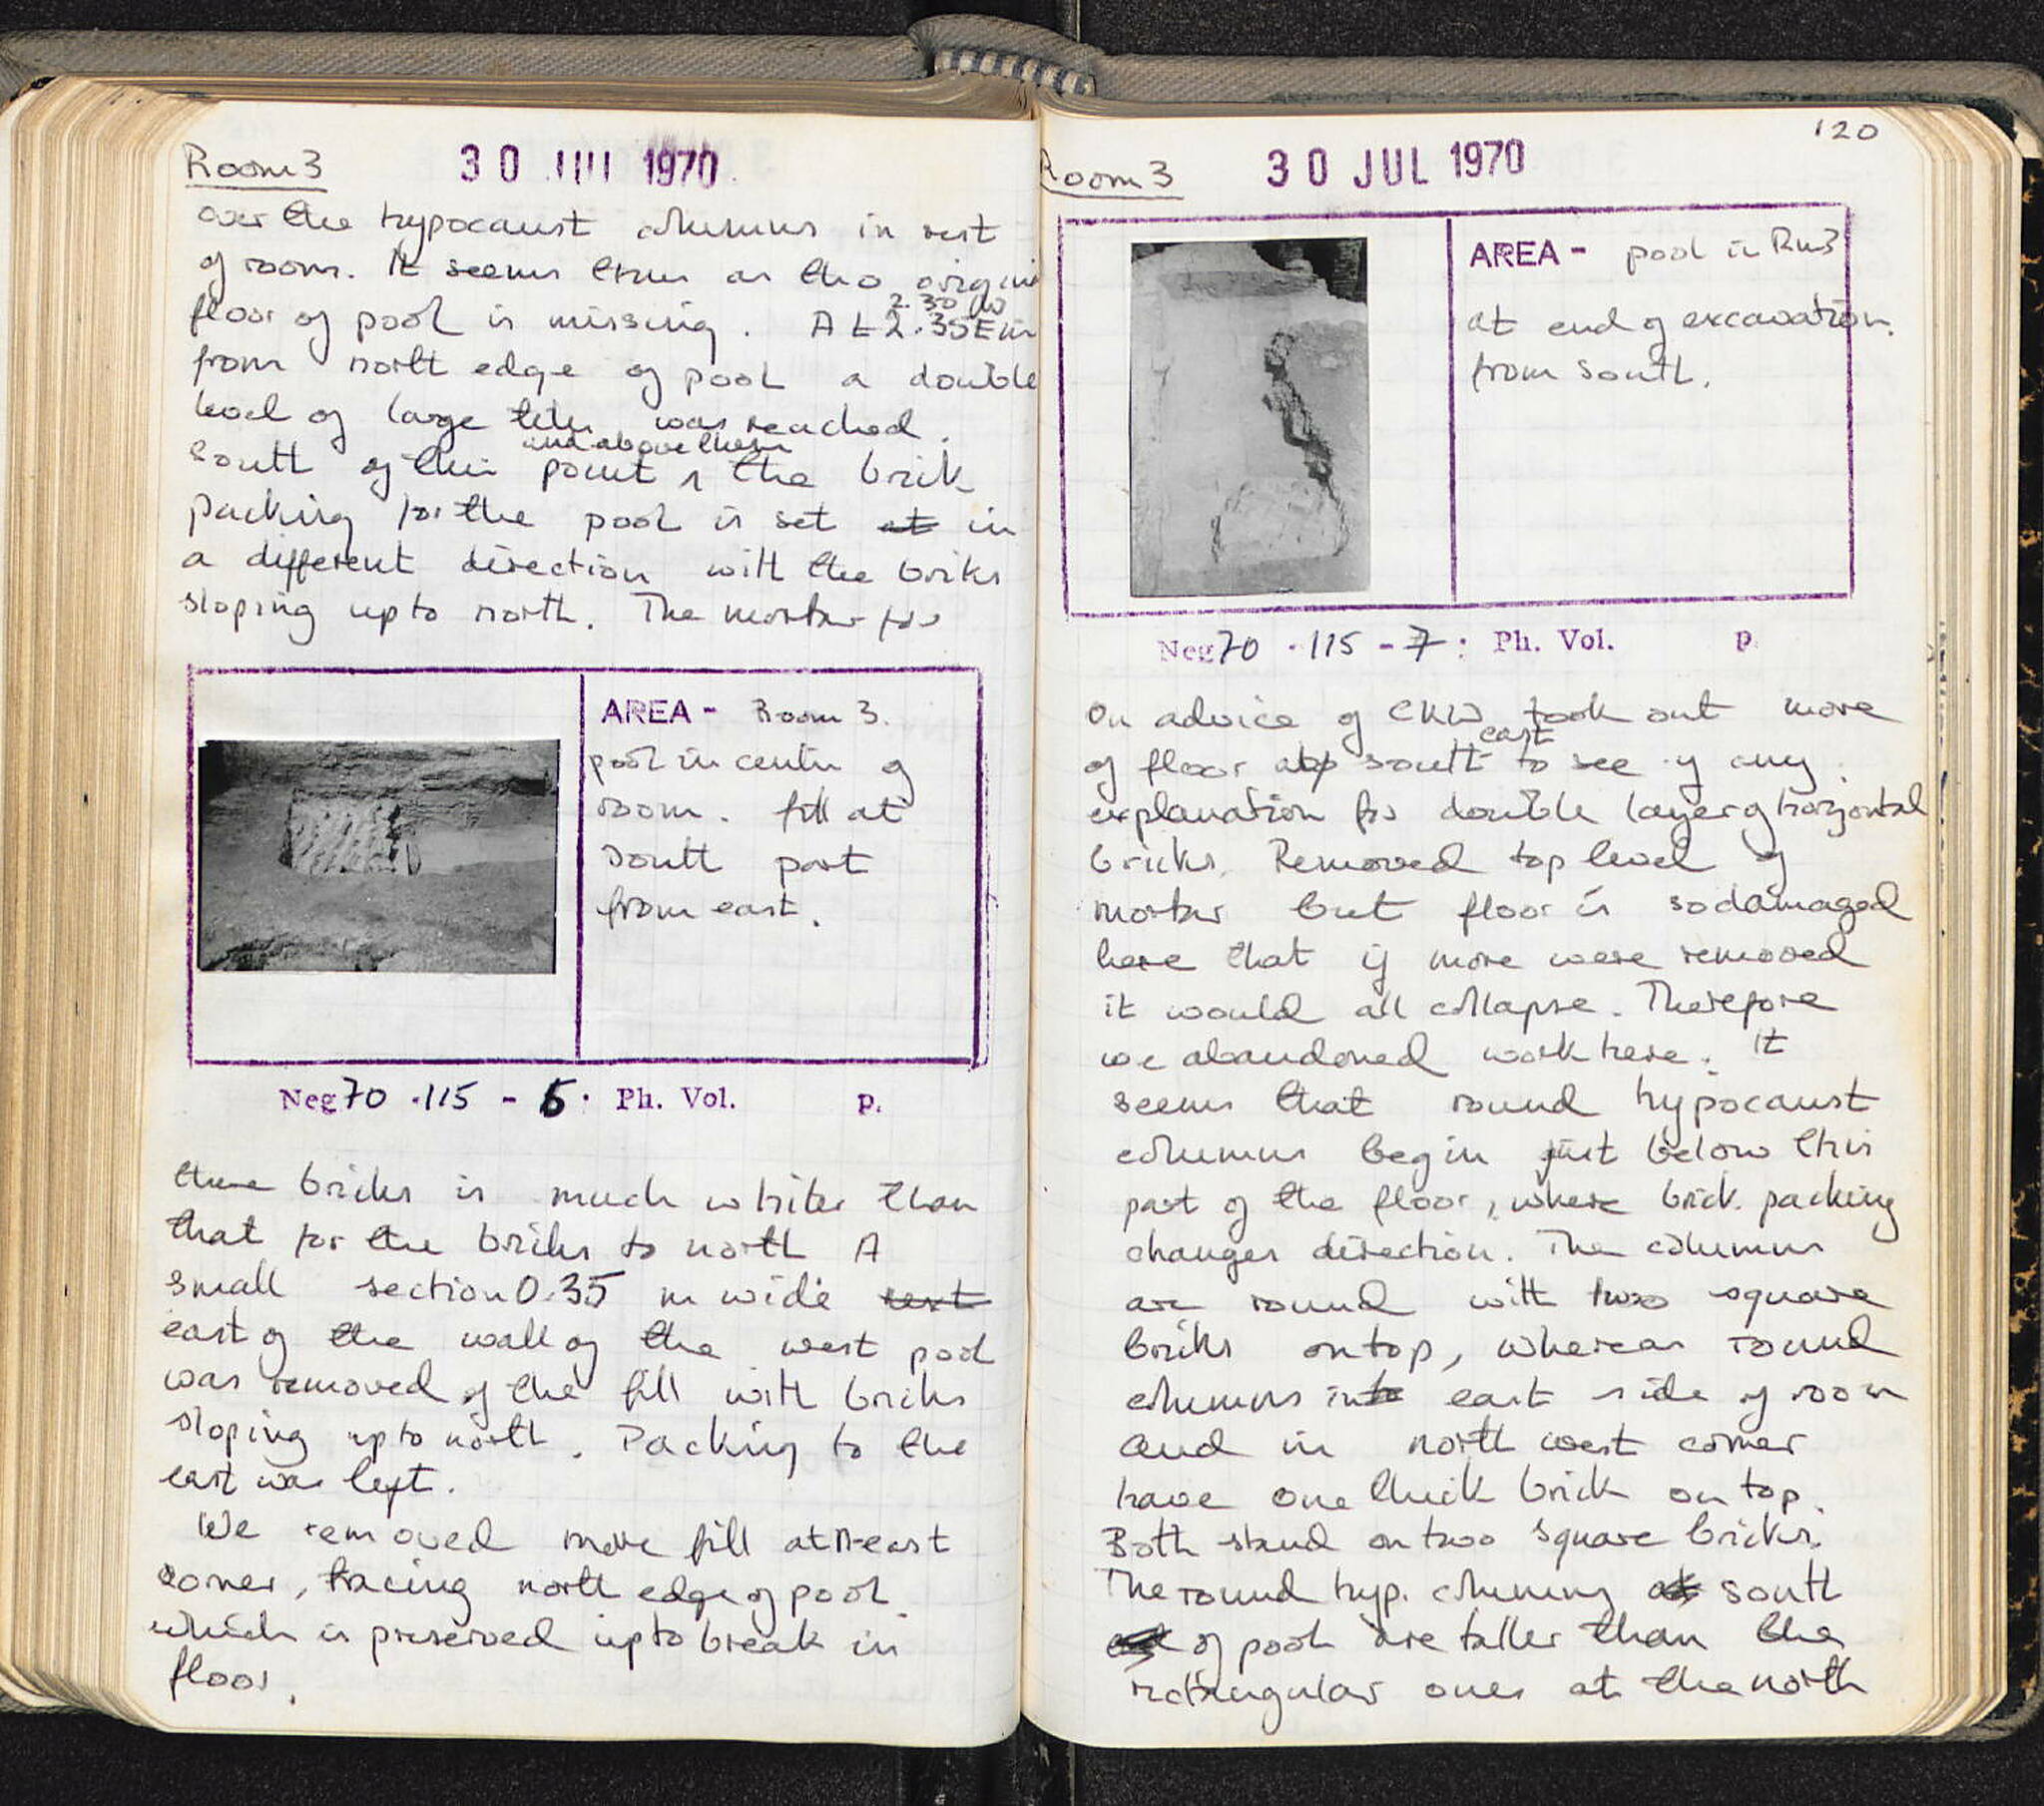 Room 3
30 JUL 1970
over the hypocaust columns in rest
of room. It seems thus as tho origin
floor of pool is missing. At 2.35 E m
2.30 W
from north edge of pool a double
level of large tiles was reached.
and above them
South of this point ʌ the brick
packing for the pool is set at in
a different direction with the bricks
sloping up to north. The mortar for
AREA - Room 3.
pool in centre of
room. fill at
south part
from east.
Neg 70 · 115 - 6 : Ph. Vol. p.
these bricks is much whiter than
that for the bricks to north A
small section 0.35 m wide
east of the wall of the west pool
was removed of the fill with bricks
sloping up to north. Packing to the
east was left.
We removed more fill at n-east
corner, tracing north edge of pool
which is preserved up to break in
floor.
120
Room 3
30 JUL 1970
AREA - pool in Rm3
at end of excavation.
from south.
Neg 70 · 115 - 7 : Ph. Vol. p.
On advice of CKW took out more
east
of floor south to see if any
explanation for double layer of horizontal
bricks. Removed top level of
mortar but floor is so damaged
here that if more were removed
it would all collapse. Therefore
we abandoned work here. It
seems that round hypocaust
columns begin just below this
part of the floor, where brick packing
changes direction. The columns
are round with two square
bricks on top, whereas round
columns in east side of room
and in north west corner
have one thick brick on top.
Both stand on two square bricks.
The round hyp. columns at south
of pool are taller than the
rectangular ones at the north